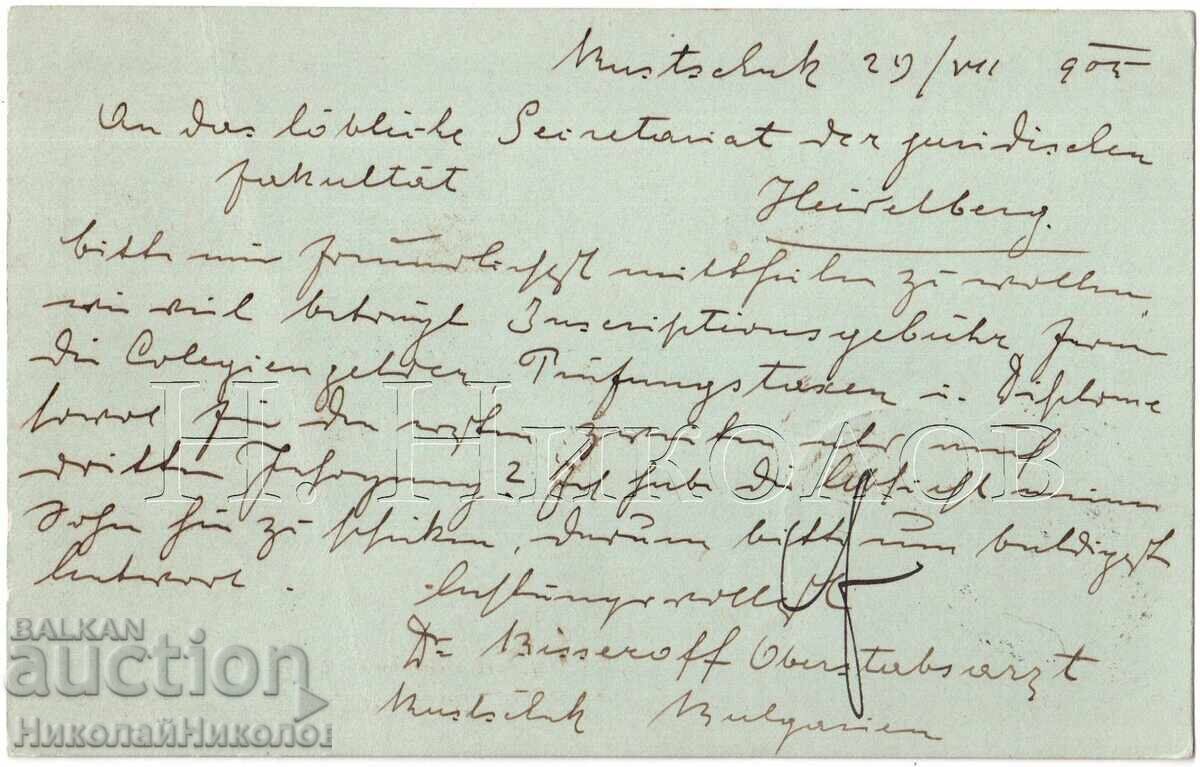 Rustschuk 29/VII 905
An das löbliche Secretariat der juridischen
Fakultät Heidelberg.
bitte mir freundlichst mittheilen zu wollen
wie viel beträgt Inscriptionsgebühr, ferner
die Colegiengelder, Prüfungstaxen u. Diplome
sowol für den ersten zweiten oder auch
dritten Jahrgang? Ich habe die Absicht meinen
Sohn hin zu schiken, darum bitte um baldigste
Antwort.
Achtungsvollst
Dr Bisseroff Oberstabsarzt
Rustschuk Bulgarien
Н. Николов
BALKAN
auction
НиколайНиколов